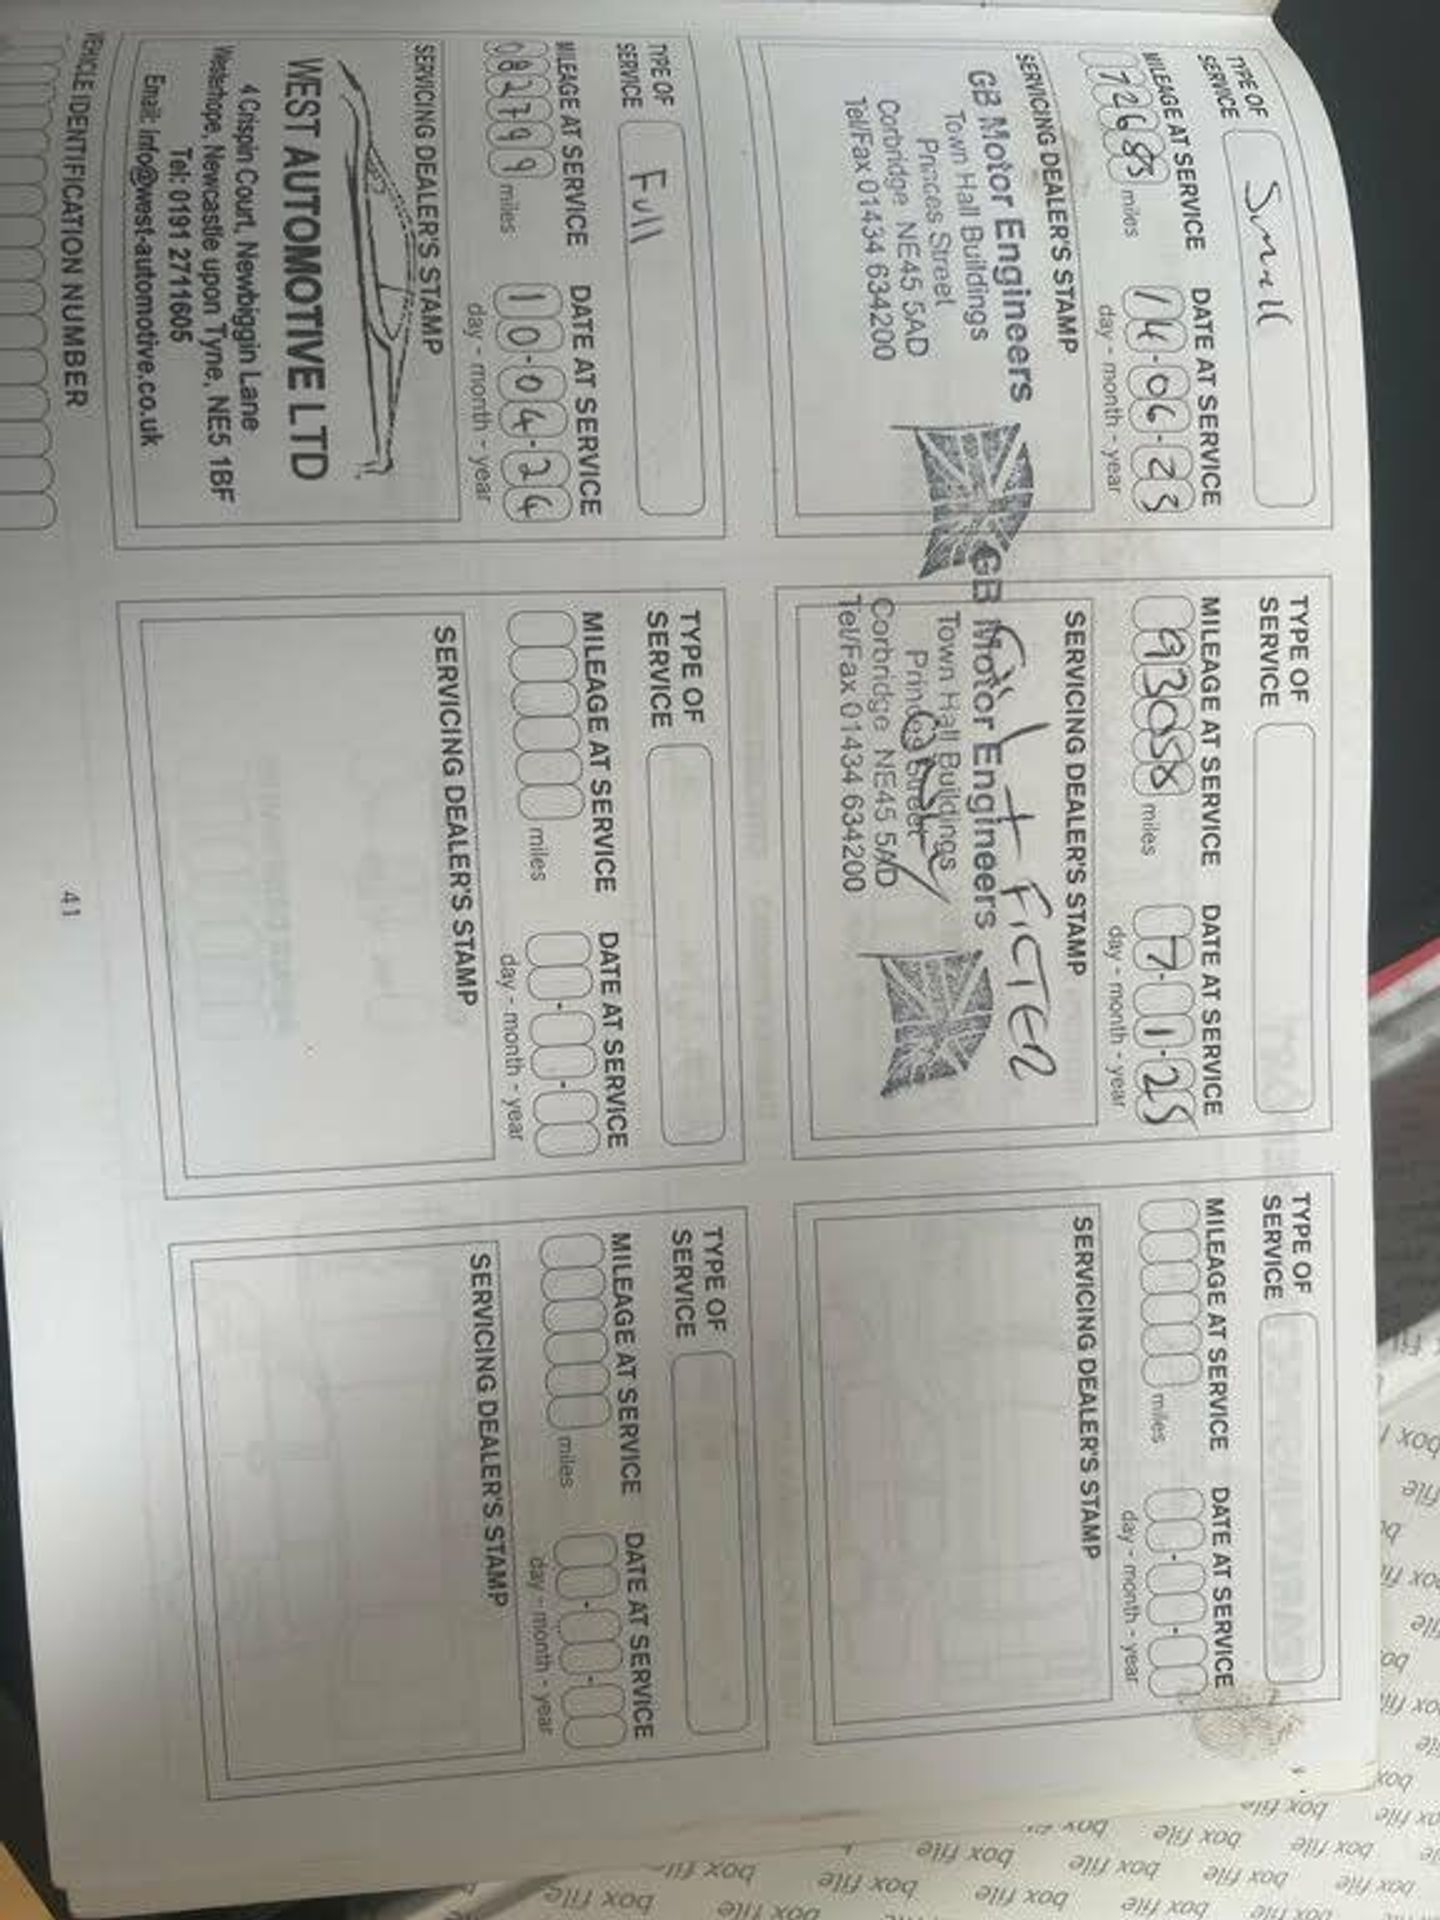 TYPE OF
SERVICE
Small
MILEAGE AT SERVICE
DATE AT SERVICE
72685 miles
14-06-23
day - month - year
SERVICING DEALER'S STAMP
GB Motor Engineers
Town Hall Buildings
Princes Street
Corbridge NE45 5AD
Tel/Fax 01434 634200
TYPE OF
SERVICE
MILEAGE AT SERVICE
DATE AT SERVICE
93058 miles
7-1-25
day - month - year
SERVICING DEALER'S STAMP
Oil + FILTER
GB Motor Engineers
Town Hall Buildings
Princes Street
Corbridge NE45 5AD
Tel/Fax 01434 634200
TYPE OF
SERVICE
MILEAGE AT SERVICE
DATE AT SERVICE
miles
day - month - year
SERVICING DEALER'S STAMP
TYPE OF
SERVICE
Full
MILEAGE AT SERVICE
DATE AT SERVICE
082799 miles
10-04-24
day - month - year
SERVICING DEALER'S STAMP
WEST AUTOMOTIVE LTD
4 Crispin Court, Newbiggin Lane
Westerhope, Newcastle upon Tyne, NE5 1BF
Tel: 0191 2711605
Email: info@west-automotive.co.uk
TYPE OF
SERVICE
MILEAGE AT SERVICE
DATE AT SERVICE
miles
day - month - year
SERVICING DEALER'S STAMP
TYPE OF
SERVICE
MILEAGE AT SERVICE
DATE AT SERVICE
miles
day - month - year
SERVICING DEALER'S STAMP
VEHICLE IDENTIFICATION NUMBER
41
box file
box file box file
box file box file box file
box file box file box file